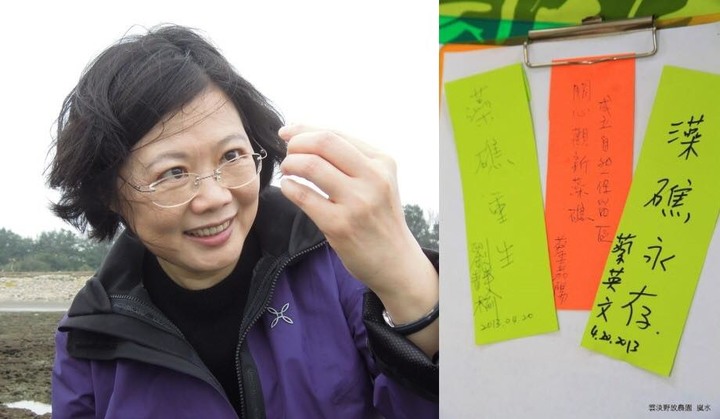 藻礁重生
劉靜榆
2013.04.20
關心觀新藻礁
成立自然保留區
藻礁永存
蔡英文
4.20.2013
雲淡野放農園 嵐水